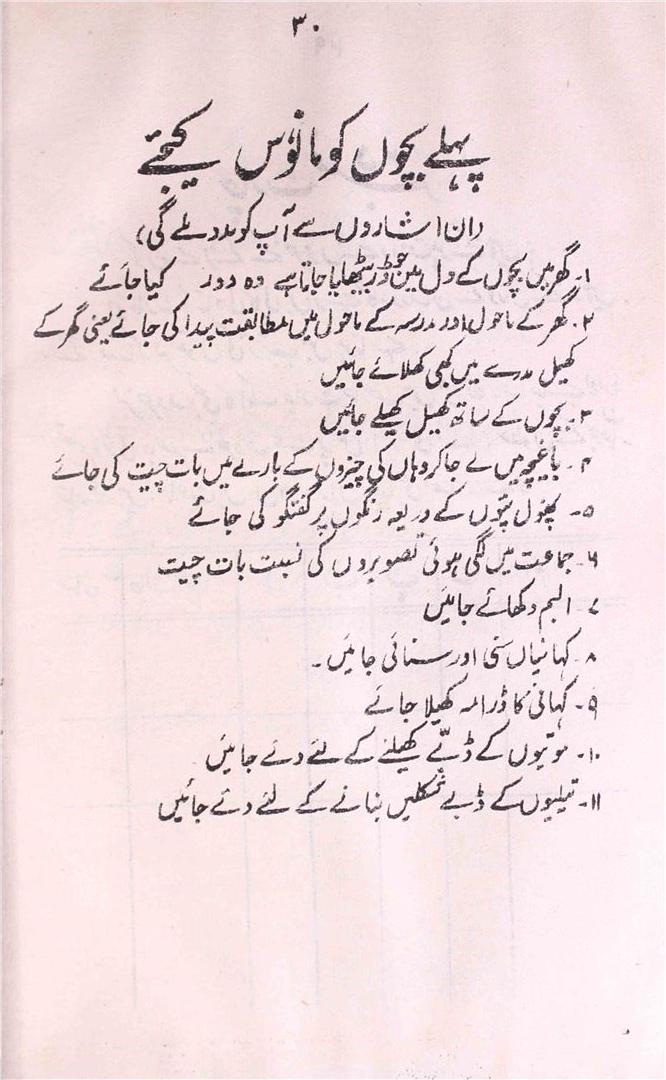 ۳۰
پہلے بچوں کو مانوس کیجئے
(ان اشاروں سے آپ کو مدد ملے گی)
۱۔ گھر میں بچوں کے دل میں جو ڈر بیٹھایا جاتا ہے وہ دور کیا جائے
۲۔ گھر کے ماحول اور مدرسہ کے ماحول میں مطابقت پیدا کی جائے یعنی گھر کے
کھیل مدرسے میں بھی کھلائے جائیں
۳۔ بچوں کے ساتھ کھیل کھیلے جائیں
۴۔ باغیچہ میں لے جا کر وہاں کی چیزوں کے بارے میں بات چیت کی جائے
۵۔ پھول پتوں کے ذریعہ رنگوں پر گفتگو کی جائے
۶۔ جماعت میں لگی ہوئی تصویروں کی نسبت بات چیت
۷۔ البم دکھائے جائیں
۸۔ کہانیاں سنی اور سنائی جائیں۔
۹۔ کہانی کا ڈرامہ کھیلا جائے
۱۰۔ موتیوں کے ڈبے کھیلنے کے لئے دئے جائیں
۱۱۔ تیلیوں کے ڈبے شکلیں بنانے کے لئے دئے جائیں